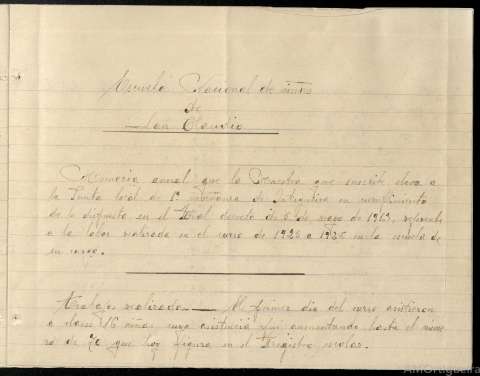 Escuela Nacional de niños
de
San Claudio
Memoria anual que la Maestra que suscribe eleva a
la Junta local de 1ª enseñanza de Ortigueira en cumplimiento
de lo dispuesto en el Real decreto de 5 de mayo de 1913, referente
a la labor realizada en el curso de 1925 a 1926 en la escuela de
su cargo.
Trabajo realizado. — El primer dia del curso asistieron
a clase 16 niños, cuya asistencia fué aumentando hasta el nume
ro de 70 que hoy figura en el Registro escolar.
AmOrtigueira